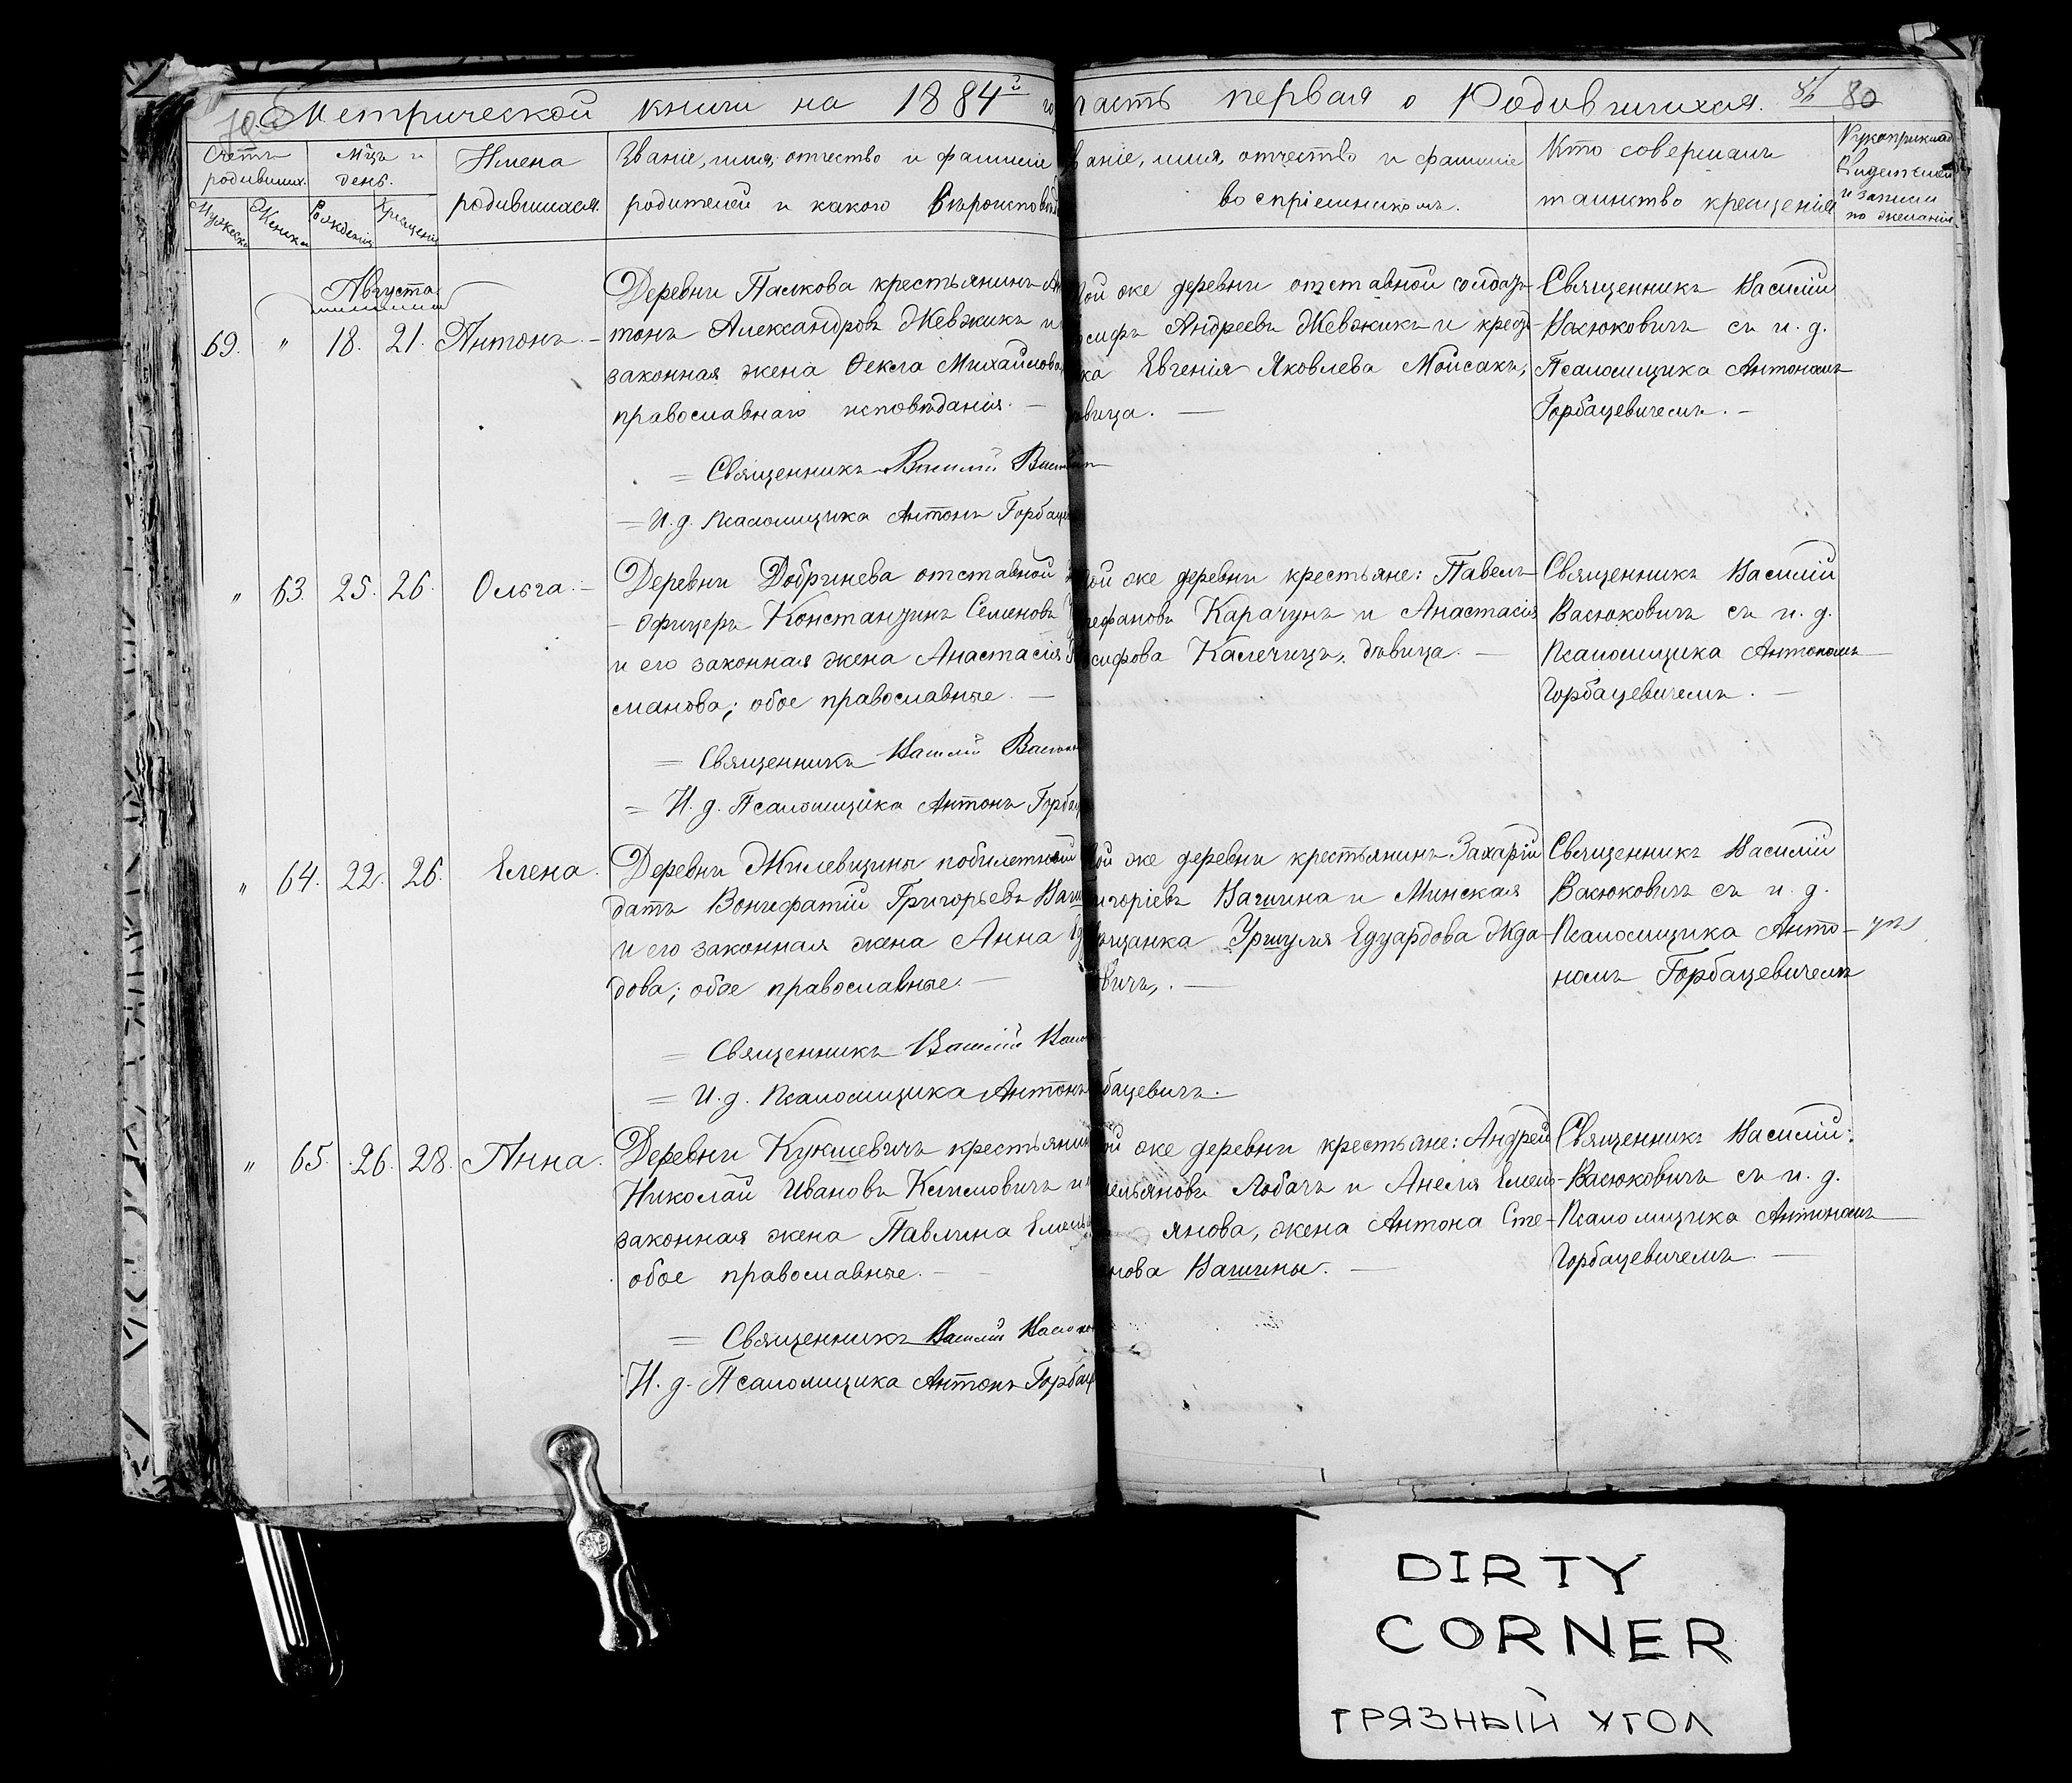 Метрической книги на 1884й го часть первая о Родившихся. 80
Счетъ родивших.
Мужеска
Женска
Мцъ и день.
Рожденія
Крещенія
Имена родившихся.
Званіе, имя, отчество и фамилія
родителей и какого вѣроисповѣд
Званіе, имя, отчество и фамилія
воспріемниковъ.
Кто совершалъ
таинство крещенія
Рукоприклад
свидетелей
и записи
по желанію
Августа
69. " 18. 21. Антонъ.
Деревни Палкова крестьянинъ Ан
тонъ Александровъ Жевжикъ и
законная жена Ѳекла Михайлова,
православнаго исповѣданія. —
той же деревни отставной солдатъ
осифъ Андреевъ Жевжикъ и крест-
ка Евгенія Яковлева Мойсакъ,
ѣвица. —
Священникъ Василій
Васюковичъ съ и. д.
Псаломщика Антономъ
Горбацевичемъ. —
= Священникъ Василій Васюков
= И. д. Псаломщика Антонъ Горбаце
" 63. 25. 26. Ольга. —
Деревни Добринева отставной
- офицеръ Константинъ Семеновъ
и его законная жена Анастасія
сманова; обое православные. —
той же деревни крестьяне: Павелъ
тефановъ Карачунъ и Анастасія
осифова Калечицъ, дѣвица. —
Священникъ Василій
Васюковичъ съ и. д.
Псаломщика Антономъ
Горбацевичемъ. —
= Священникъ Василій Васюк
= И. д. Псаломщика Антонъ Горбац
" 64. 22. 26. Елена.
Деревни Жилевщины побилетный
датъ Вонифатій Григорьевъ Ваш
и его законная жена Анна
дова; обое православные. —
той же деревни крестьянинъ Захарій
игоріевъ Вашина и Минская
ѣщанка Уршуля Едуардова Жда-
овичъ, . —
Священникъ Василій
Васюковичъ съ и. д.
Псаломщика Анто-
номъ Горбацевичемъ
= Священникъ Василій Васю
= И. д. Псаломщика Антонъ бацевичъ. —
" 65. 26. 28. Анна.
Деревни Кукшевичъ крестьянин
Николай Ивановъ Климовичъ и
законная жена Павлина Емелья
обое православные. —
той же деревни крестьяне: Андрей
ельяновъ Лобачъ и Анеля Емель-
янова, жена Антона Сте-
нова Вашины. —
Священникъ Василій
Васюковичъ съ и. д.
Псаломщика Антономъ
Горбацевичемъ. —
= Священникъ Василій Васюко
И. д. Псаломщика Антонъ Горбац
DIRTY
CORNER
ГРЯЗНЫЙ УГОЛ